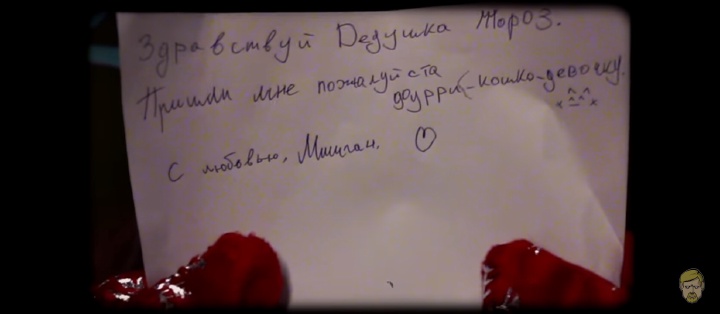 Здравствуй Дедушка Мороз.
Пришли мне пожалуйста
фурри-кошко-девочку.
С любовью, Мишган. ♡